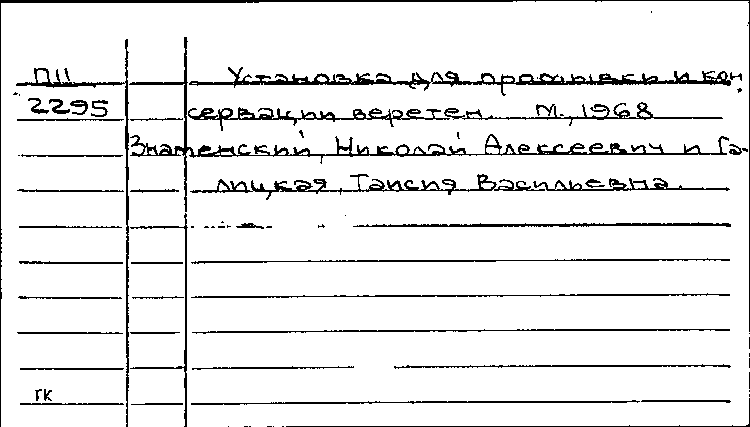 П11 Установка для промывки и кон-
2295 сервации веретен. М., 1968
Знаменский, Николай Алексеевич и Га-
лицкая, Таисия Васильевна.
ГК